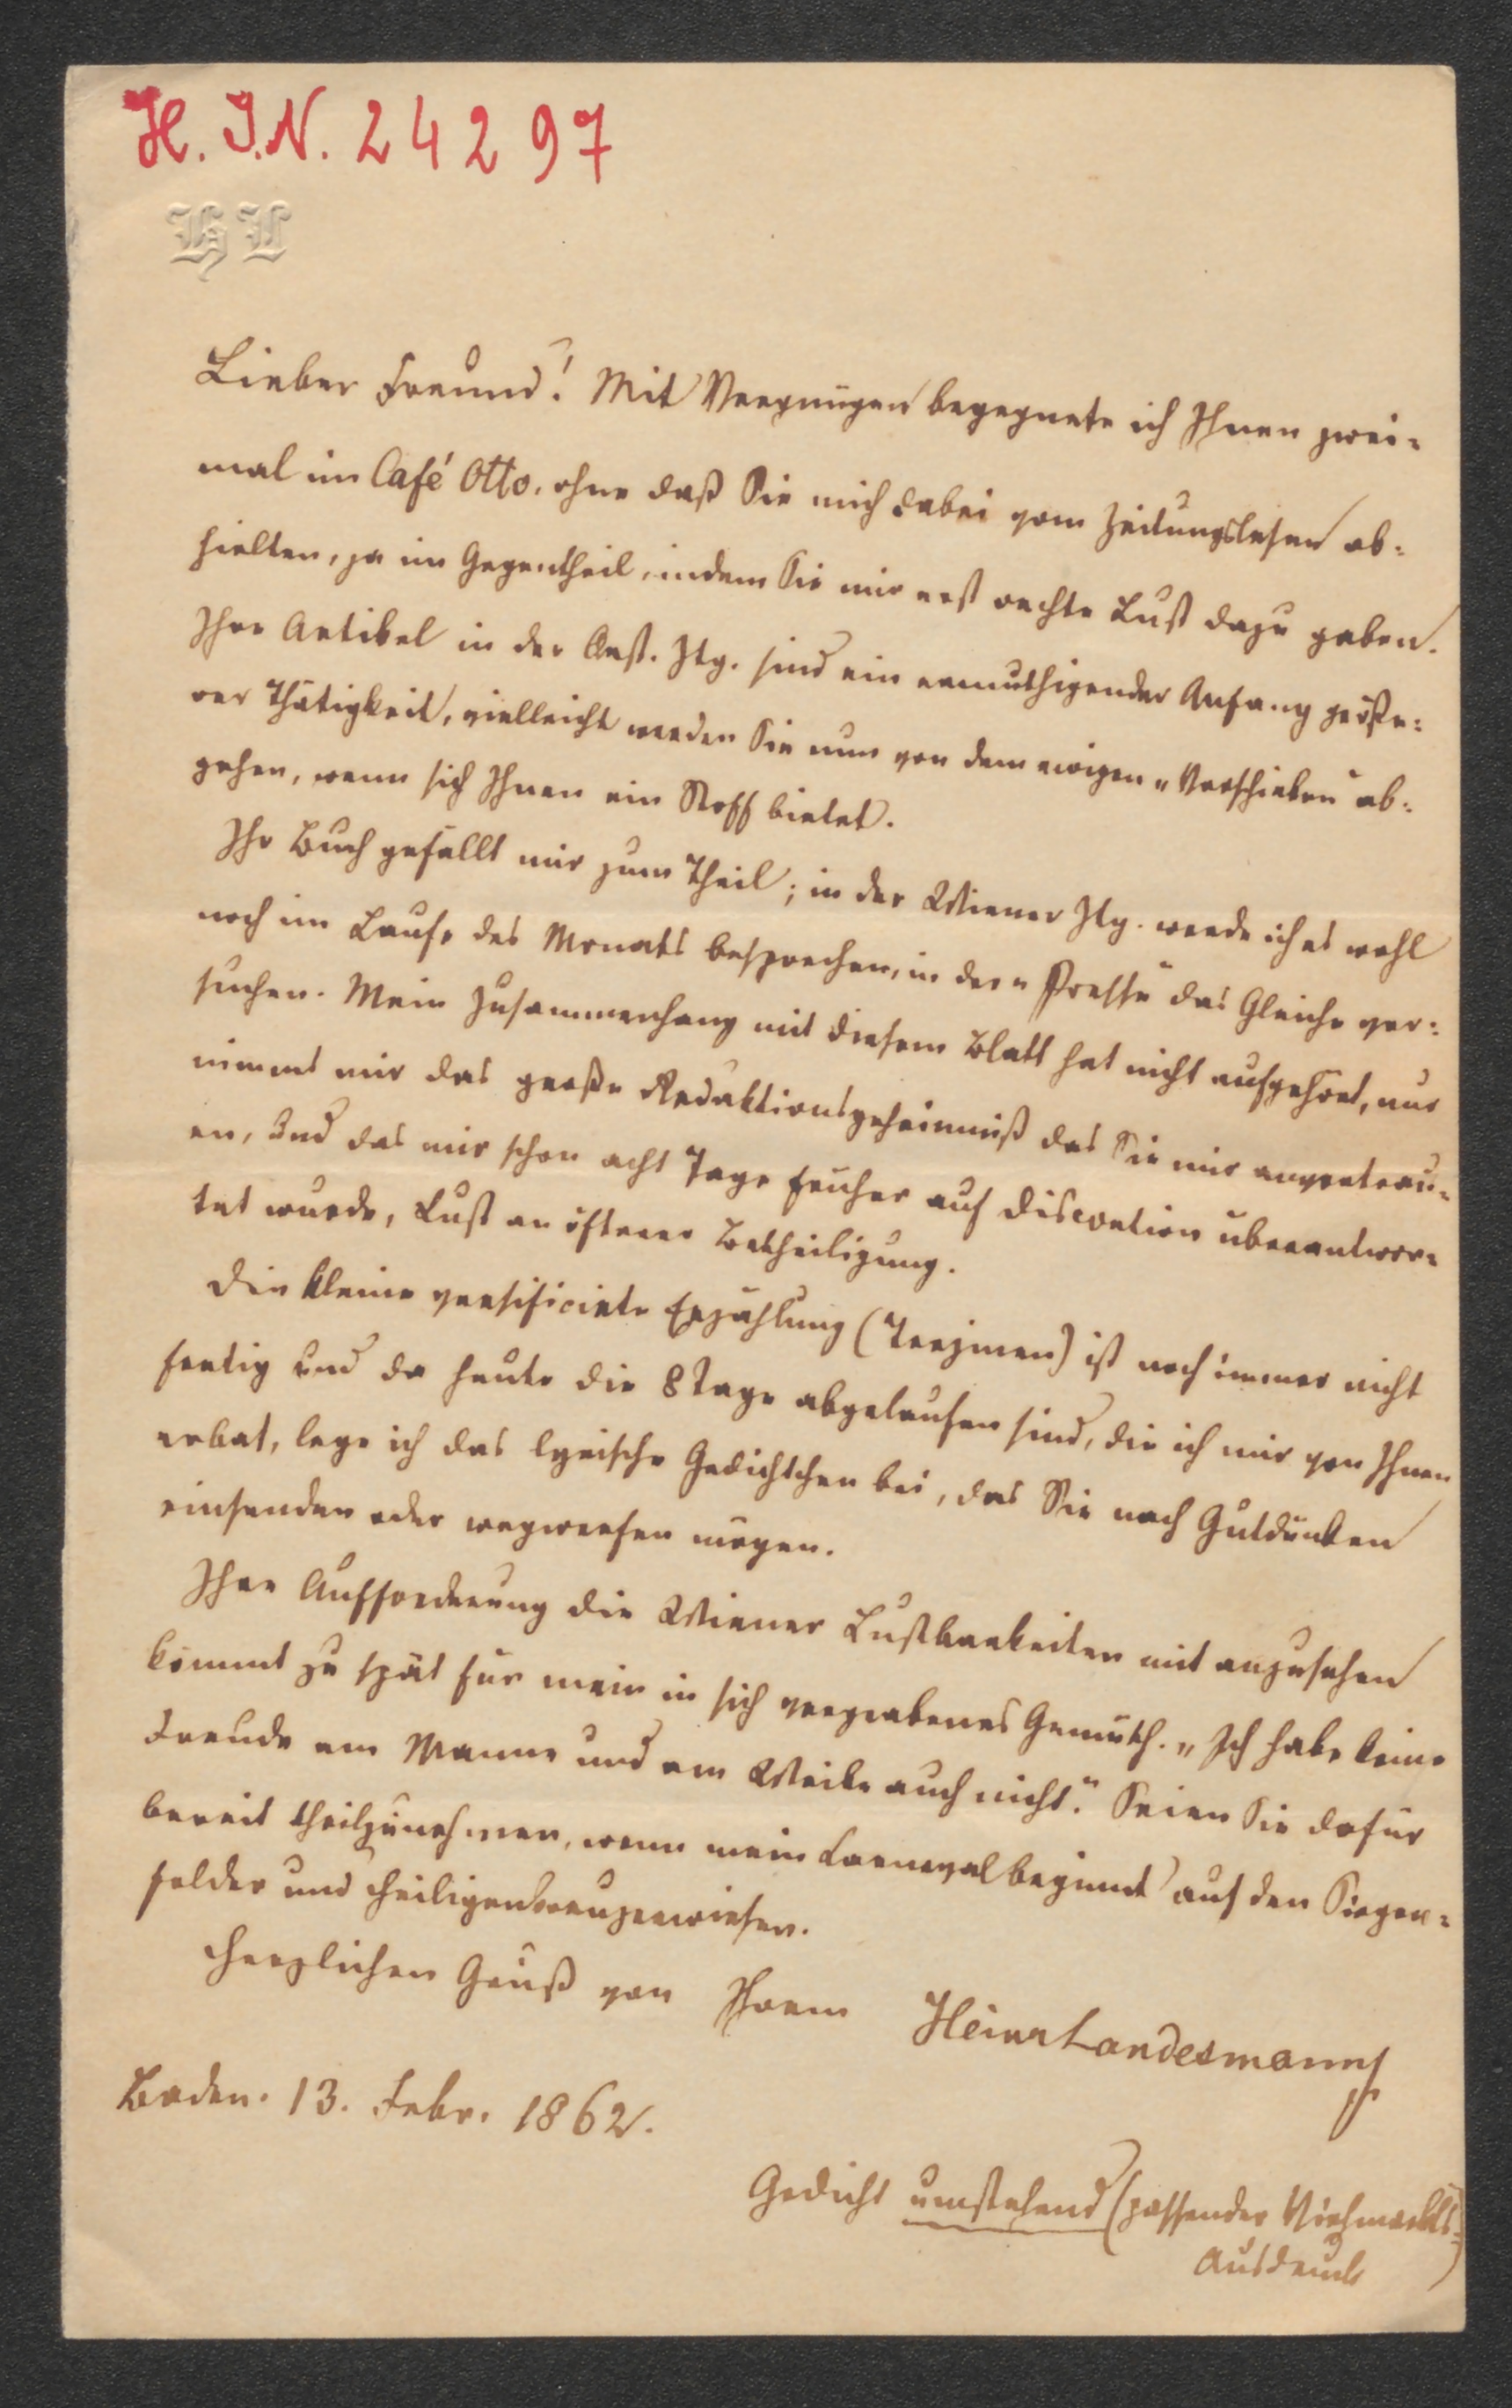 H. I.N. 24297
HL
Lieber Freund! Mit Vergnügen begegnete ich Ihnen zwei-
mal im Café Otto, ohne daß Sie mich dabei vom Zeitungslesen ab-
hielten, ja im Gegentheil, indem Sie mir erst rechte Lust dazu gaben.
Ihre Artikel in der Oest. Ztg. sind ein ermuthigender Anfang größe-
rer Thätigkeit, vielleicht werden Sie nun von dem ewigen „Verschieben“ ab-
gehen, wenn sich Ihnen ein Stoff bietet.
Ihr Buch gefällt mir zum Theil; in der Wiener Ztg. werde ich es wohl
noch im Laufe des Monats besprechen, in der „Presse“ das Gleiche ver-
suchen. Mein Zusammenhang mit diesem Blatt hat nicht aufgehört, nur
nimmt mir das große Redaktionsgeheimniß das Sie mir anvertrau-
en, und das mir schon acht Tage früher auf Discretion überantwor-
tet wurde, Lust an öfterer Betheiligung.
Die kleine versificirte Erzählung (Terzinen) ist noch immer nicht
fertig und da heute die 8 Tage abgelaufen sind, die ich mir von Ihnen
erbat, lege ich das lyrische Gedichtchen bei, das Sie nach Gutdünken
einsenden oder wegwerfen mögen.
Ihre Aufforderung die Wiener Lustbarkeiten mit anzusehen
kömmt zu spät für mein in sich vergrabenes Gemüth. „Ich habe keine
Freude am Manne und am Weibe auch nicht.“ Seien Sie dafür
bereit theilzunehmen, wenn mein Carneval beginnt auf den Siegen-
felder und Heiligenkreuzerwiesen.
Herzlichen Gruß von Ihrem Heinr Landesmann
Baden. 13. Febr. 1862.
Gedicht umstehend (passender Viehmarkts-
Ausdruck)